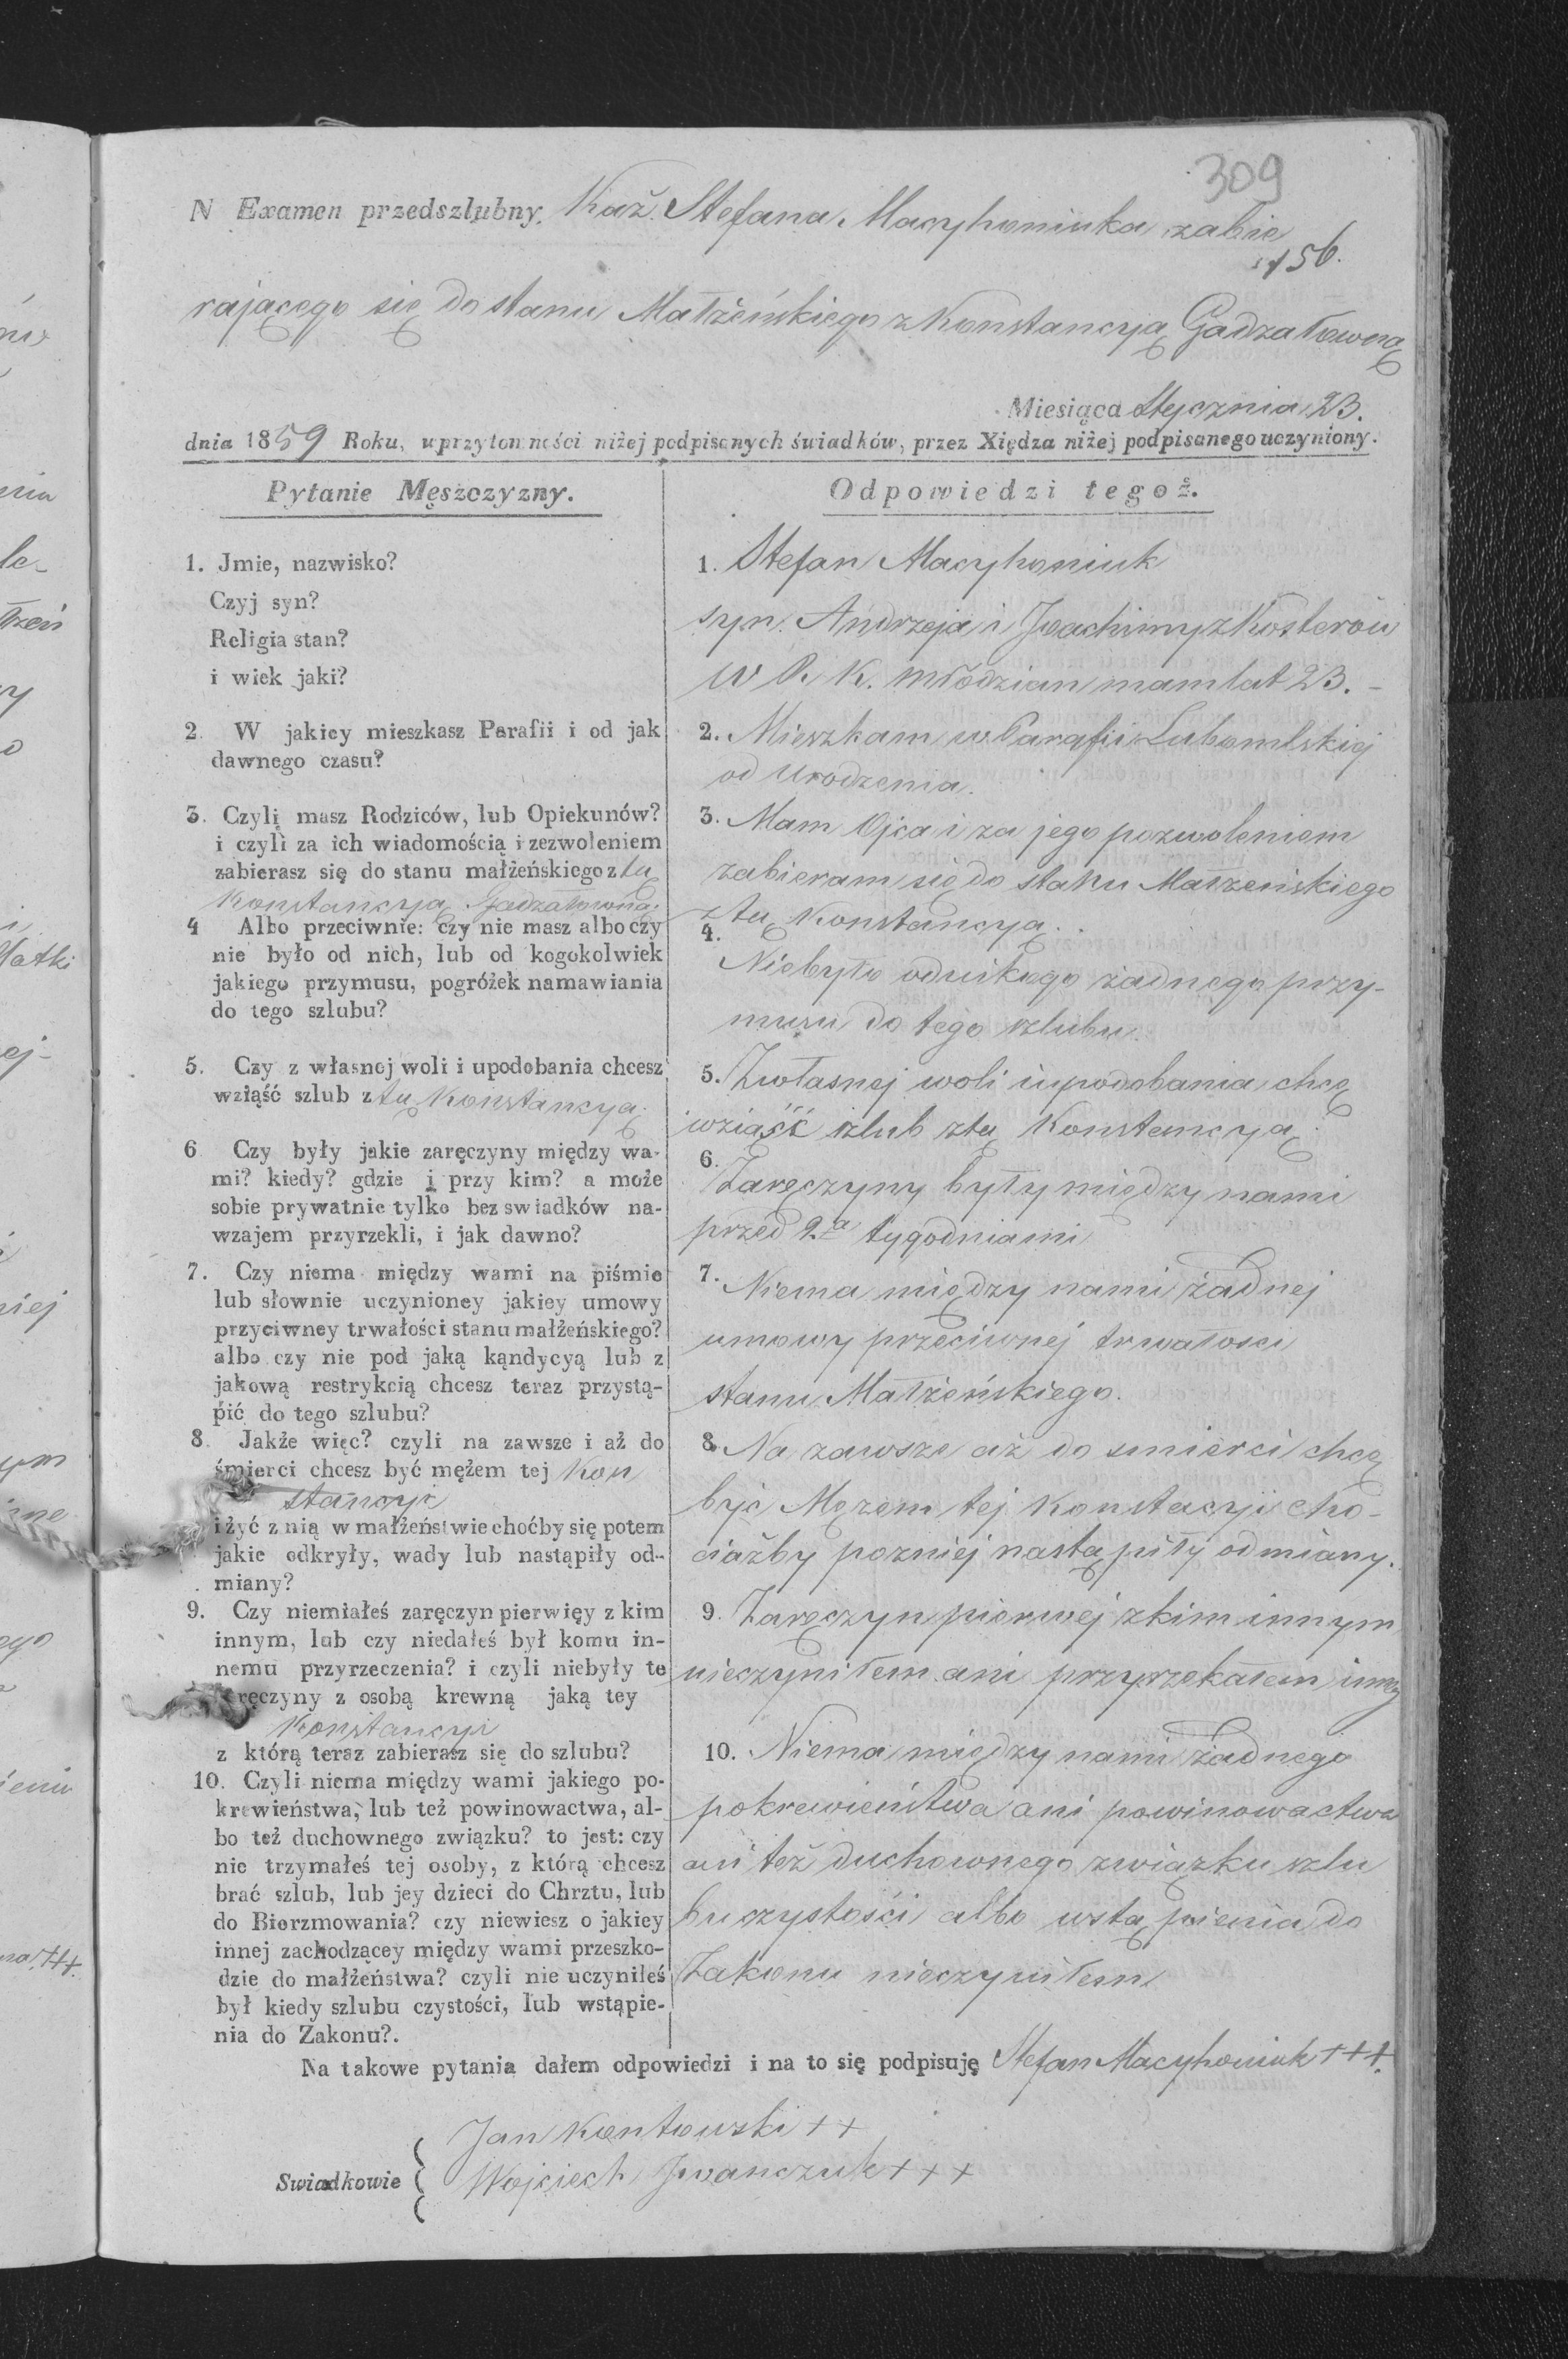 309
N Examen przedszlubny. Kaź. Stefana Macyhoniuka zabie
156.
rającego się do stanu Małżeńskiego z Konstancyą Gadzałowną
Miesiąca Stycznia 23.
dnia 1859 Roku, uprzytomności niżej podpisanych świadków, przez Xiędza niżej podpisanego uczyniony.
Pytanie Męszczyzny.
1. Jmie, nazwisko?
Czyj syn?
Religia stan?
i wiek jaki?
2. W jakiey mieszkasz Parafii i od jak
dawnego czasu?
3. Czyli masz Rodziców, lub Opiekunów?
i czyli za ich wiadomością i zezwoleniem
zabierasz się do stanu małżeńskiego z tą
Konstancyą Gadzałowną
4 Albo przeciwnie: czy nie masz albo czy
nie było od nich, lub od kogokolwiek
jakiego przymusu, pogróżek namawiania
do tego szlubu?
5. Czy z własnej woli i upodobania chcesz
wziąść szlub z tą Konstancyą.
6 Czy były jakie zaręczyny między wa-
mi? kiedy? gdzie i przy kim? a może
sobie prywatnie tylko bez swiadków na-
wzajem przyrzekli, i jak dawno?
7. Czy niema między wami na piśmie
lub słownie uczynioney jakiey umowy
przyciwney trwałości stanu małżeńskiego?
albo czy nie pod jaką kąndycyą lub z
jakową restrykcią chcesz teraz przystą-
pić do tego szlubu?
8. Jakże więc? czyli na zawsze i aż do
śmierci chcesz być mężem tej Kon
stancyi
i żyć z nią w małżeństwie choćby się potem
jakie odkryły, wady lub nastąpiły od-
miany?
9. Czy niemiałeś zaręczyn pierwięy z kim
innym, lub czy niedałeś był komu in-
nemu przyrzeczenia? i czyli niebyły te
ręczyny z osobą krewną jaką tey
Konstancyi
z którą teraz zabierasz się do szlubu?
10. Czyli niema między wami jakiego po-
krewieństwa, lub też powinowactwa, al-
bo też duchownego związku? to jest: czy
nie trzymałeś tej osoby, z którą chcesz
brać szlub, lub jey dzieci do Chrztu, lub
do Bierzmowania? czy niewiesz o jakiey
innej zachodzącey między wami przeszko-
dzie do małżeństwa? czyli nie uczyniłeś
był kiedy szlubu czystości, lub wstąpie-
nia do Zakonu?.
Odpowiedzi tegoż.
1. Stefan Macyhoniuk
syn Andrzeja i Joachimy z Kosterów
W R. K. młodzian mam lat 23. -
2. Mieszkam w Parafii Lubomlskiej
od urodzenia.
3. Mam Ojca i za jego pozwoleniem
zabieram się do stanu Małżeńskiego
z tą Konstancyą.
4.
Niebyło od nikogo żadnego przy-
musu do tego szlubu.
5. Zwłasnej woli i upodobania chcę
wziąść szlub z tą Konstancyą.
6.
Zaręczyny były między nami
przed 2.a tygodniami
7.
Niema między nami żadnej
umowy przeciwnej trwałosci
stanu Małżeńskiego.
8. Na zawsze aż do smierci chcę
być Mężem tej Konstacyi cho-
ciażby pozniej nastąpiły odmiany.
9. Zaręczyn pierwej z kim innym
nieczyniłem ani przyrzekałem
10. Niema między nami żadnego
pokrewieństwa ani powinowactwa
ani też duchownego związku szlu
bu czystości albo wstąpienia do
Zakonu nieczyniłem
Na takowe pytania dałem odpowiedzi i na to się podpisuję Stefan Macyhoniuk +++.
Jan Kontowski ++
Swiadkowie
Wojciech Iwanczuk +++